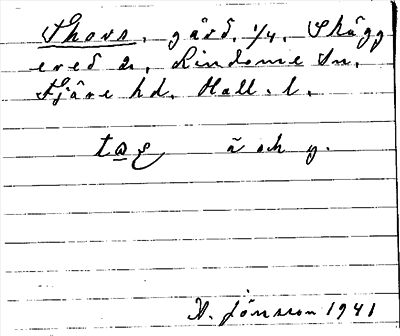 Thors, gård, 1/4, Skägg
ered 2, Lindome sn,
Fjäre hd. Hall. l.
ä och y.
A. Jönsson 1941